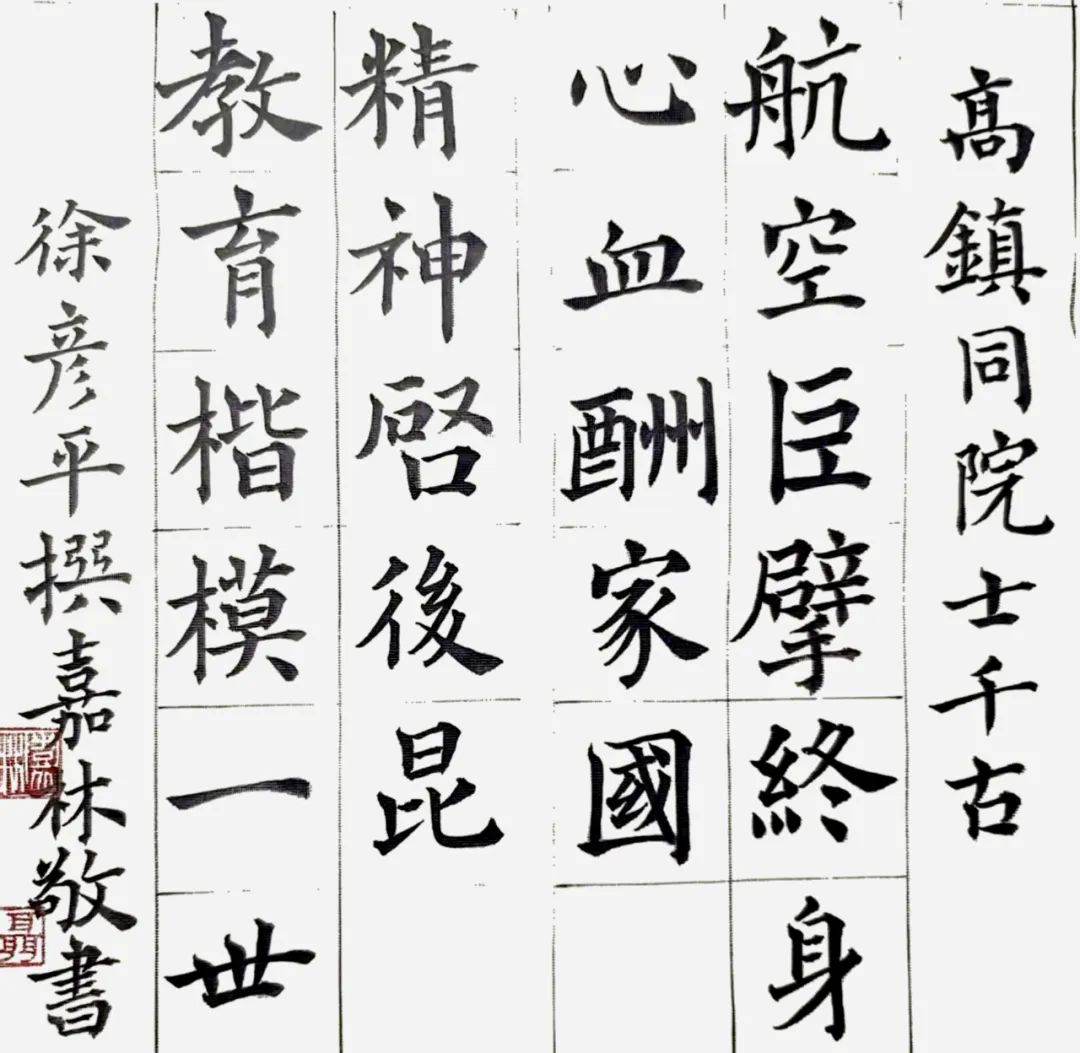 髙鎮同院士千古
航空巨擘終身
心血酬家國
精神啓後昆
教育楷模一世
徐彦平撰嘉林敬書